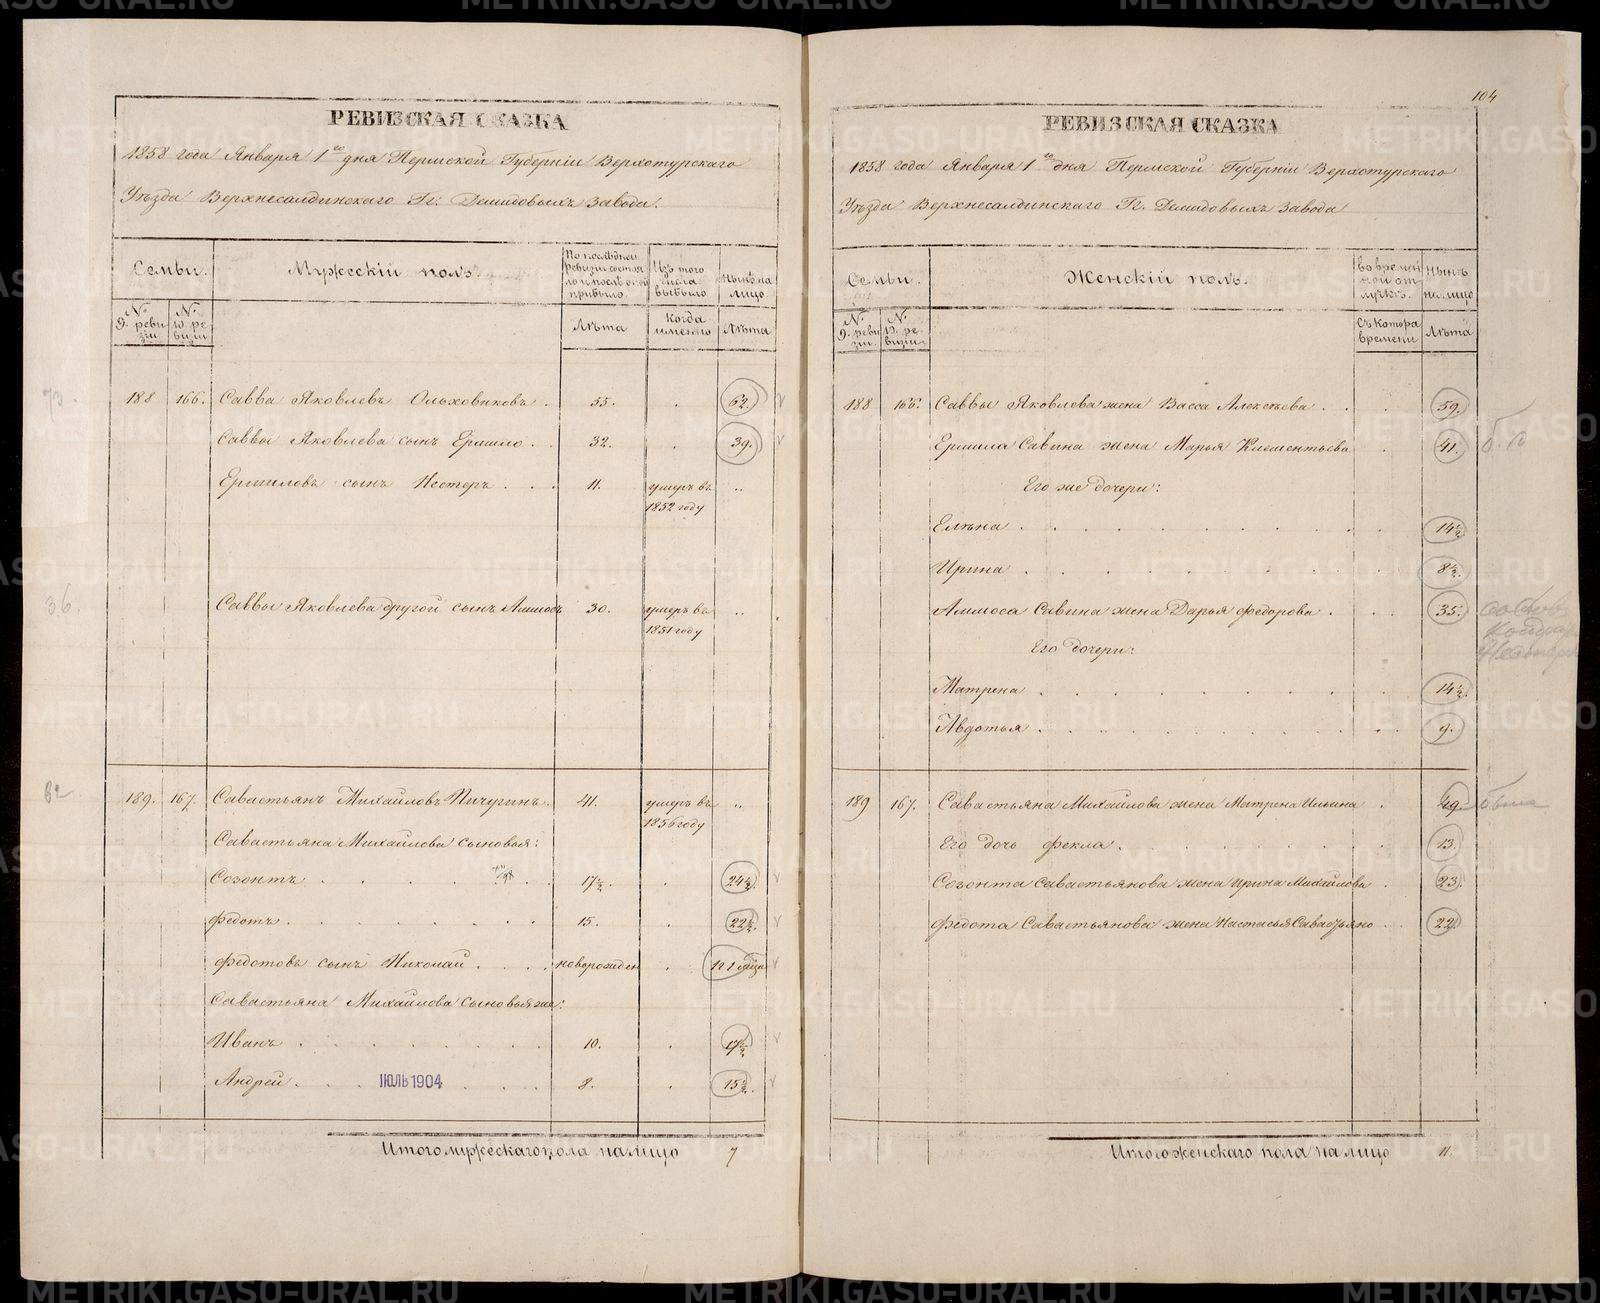 РЕВИЗСКАЯ СКАЗКА
1858 года Января 1го дня Пермской Губерніи Верхотурскаго
Уѣзда Верхнесалдинскаго Гг: Демидовыхъ завода.
Семьи.
Мужескій полъ.
По послѣдней ревизіи состояло и послѣ оной прибыло.
Изъ того числа выбыло.
Нынѣ на лицо.
№ 9. ревизіи
№ 10 ревизіи
Лѣта
Когда именно
Лѣта
188 166. Савва Яковлевъ Ольховиковъ . 55. . 62.
Саввы Яковлева сынъ Ермило . . 32. . 39.
Ермиловъ сынъ Нестеръ . . . 11. умеръ въ 1852 году ..
36.
Саввы Яковлева другой сынъ Аммосъ 30. умеръ въ 1851 году ..
189. 167. Савастьянъ Михайловъ Пичугинъ. 41. умеръ въ 1856 году ..
Савастьяна Михайлова сыновья:
Созонтъ . . . . . . 17½. . 24½.
Федотъ . . . . . . . 15. . 22½.
Федотовъ сынъ Николай . . . . новорожден .
Савастьяна Михайлова сыновья же:
Иванъ . . . . . . . 10. . 17½
Андрей . . . ІЮЛЬ 1904 . . . 8. . 15½.
Итого мужескаго пола на лицо 7
104
РЕВИЗСКАЯ СКАЗКА
1858 года Января 1го дня Пермской Губерніи Верхотурскаго
Уѣзда Верхнесалдинскаго Гг. Демидовыхъ завода
Семьи.
Женскій полъ.
Во временной отлучкѣ.
Нынѣ на лицо.
№ 9. ревизіи.
№ 10. ревизіи.
Съ котора времени
Лѣта
188 166. Саввы Яковлева жена Васса Алексѣева . . . 59.
Ермила Савина жена Марья Клементьева . 41.
Его же дочери:
Елѣна . . . . . . . . . 14½
Ирина . . . . . . . . . 8½.
Аммоса Савина жена Дарья Федорова . . . 35.
Его дочери:
Матрена . . . . . . . . . 14½.
Авдотья . . . . . . . . . 9.
189 167. Савастьяна Михайлова жена Матрена Ильина . 49.
Его дочь Фекла . . . . . . . . 13.
Созонта Савастьянова жена Ирина Михайлова . 23.
Федота Савастьянова жена Настасья . . 22.
Итого женскаго пола на лицо 11.
METRIKI.GASO-URAL.RU